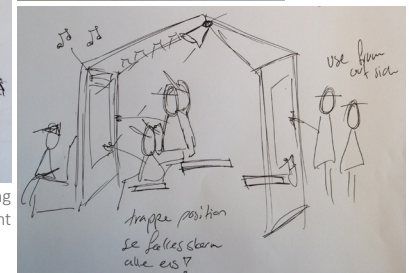 ng
nt
use from
out side
trappe position
se fælles skærm
alle ens?